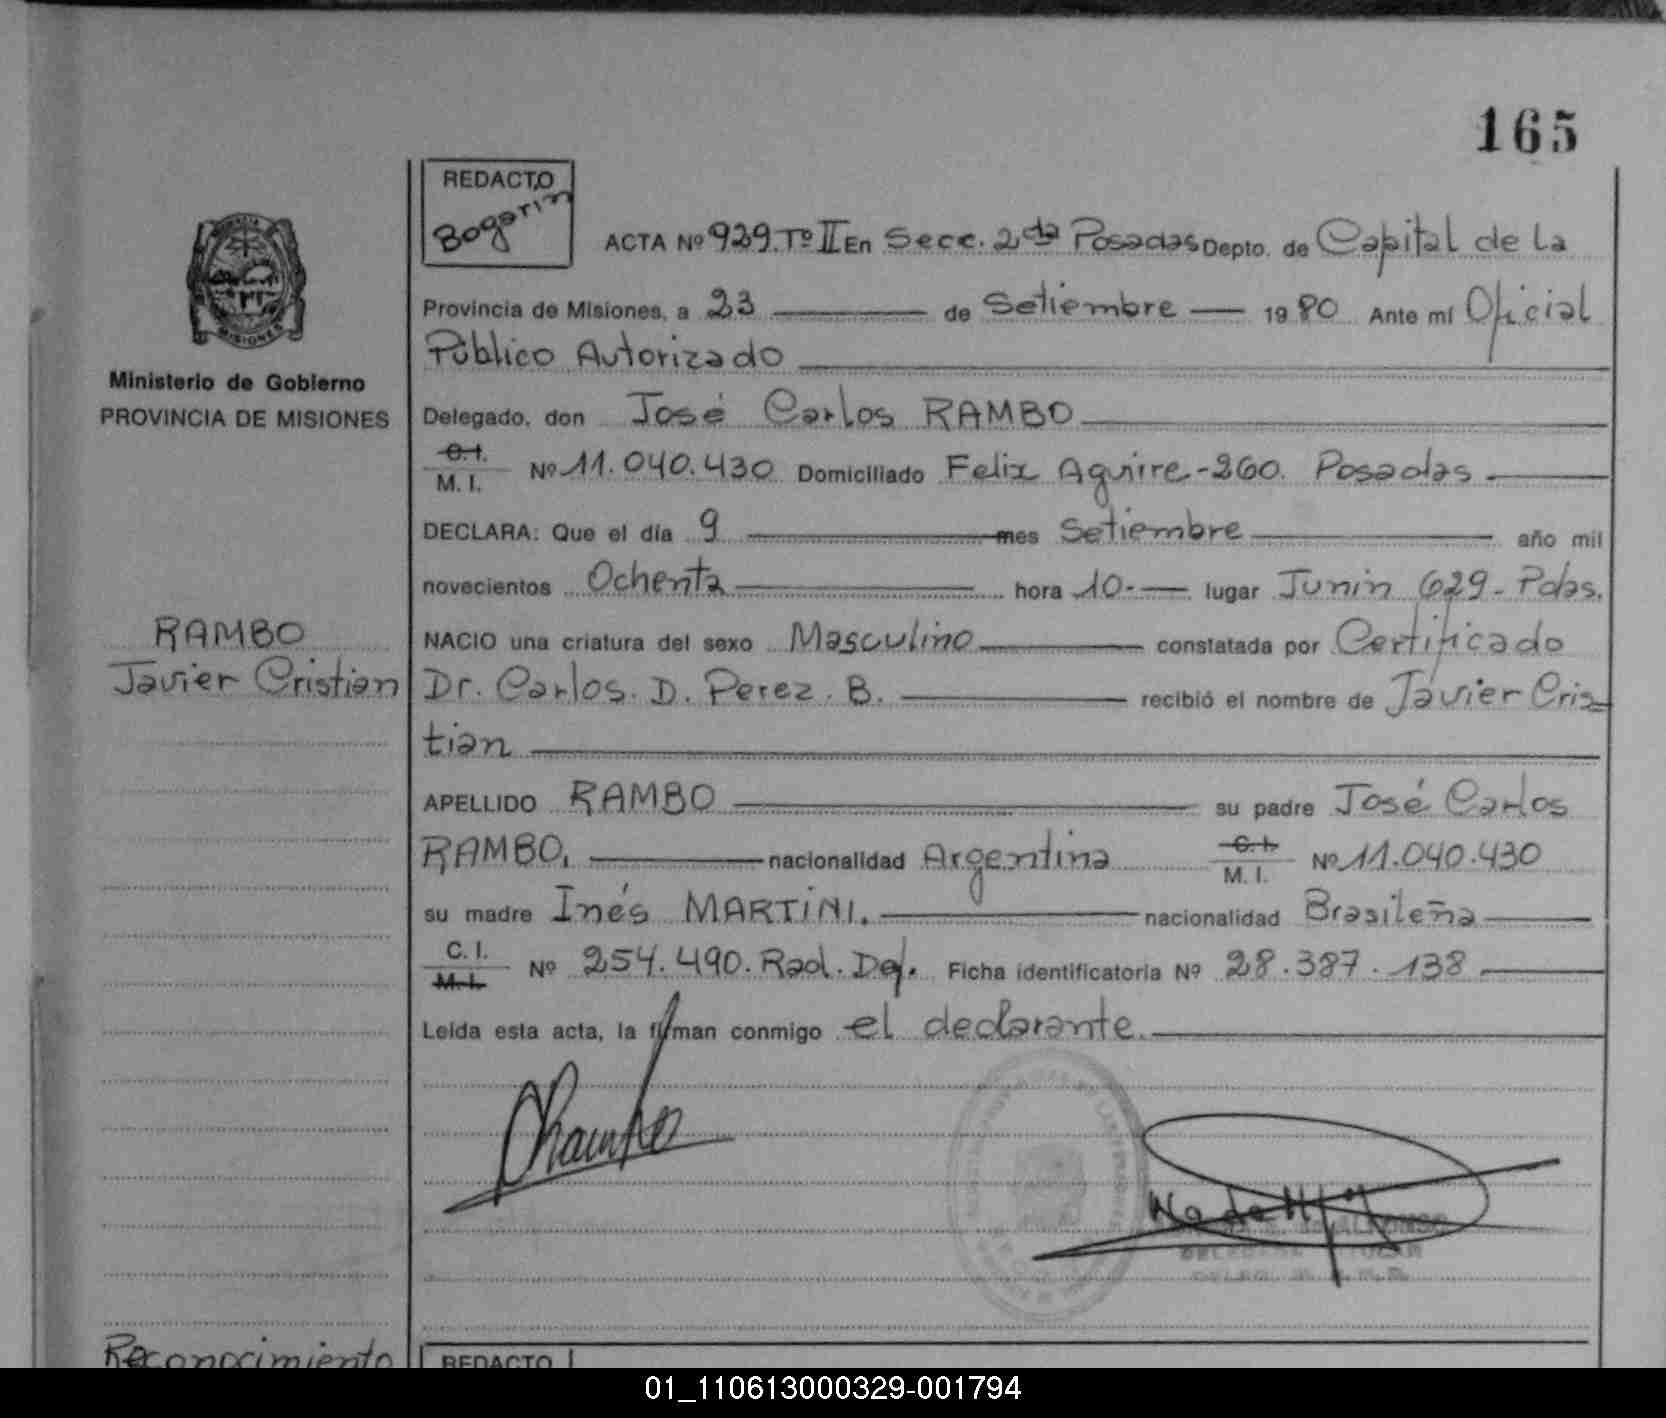 165
REDACTO
Bogarin
ACTA Nº 929. Tº II En Secc. 2da Posadas Depto. de Capital de la
Provincia de Misiones, a 23 de Setiembre 1980 Ante mí Oficial
Público Autorizado
Ministerio de Gobierno
PROVINCIA DE MISIONES
Delegado, don José Carlos RAMBO
C.I.
M. I. Nº 11.040.430 Domiciliado Felix Aguire-260. Posadas
DECLARA: Que el día 9 mes Setiembre año mil
novecientos Ochenta hora 10.- lugar Junin 629- Pdas.
RAMBO
Javier Cristian
NACIO una criatura del sexo Masculino constatada por Certificado
Dr. Carlos. D. Perez. B. recibió el nombre de Javier Cris=
tian
APELLIDO RAMBO su padre José Carlos
RAMBO. nacionalidad Argentina C.I. M. I. Nº 11.040.430
su madre Inés MARTINI. nacionalidad Brasileña
C. I.
M. I. Nº 254.490. Rad. Def. Ficha identificatoria Nº 28.387.138
Leída esta acta, la firman conmigo el declarante.
DELEGADA TITULAR
Reconocimiento
REDACTO
01_110613000329-001794